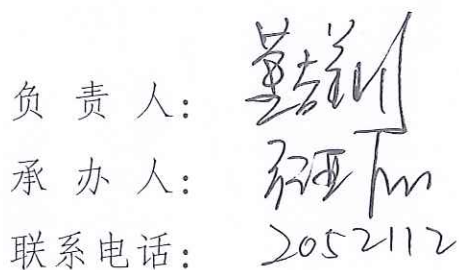 负责人：
承办人：
联系电话：2052112